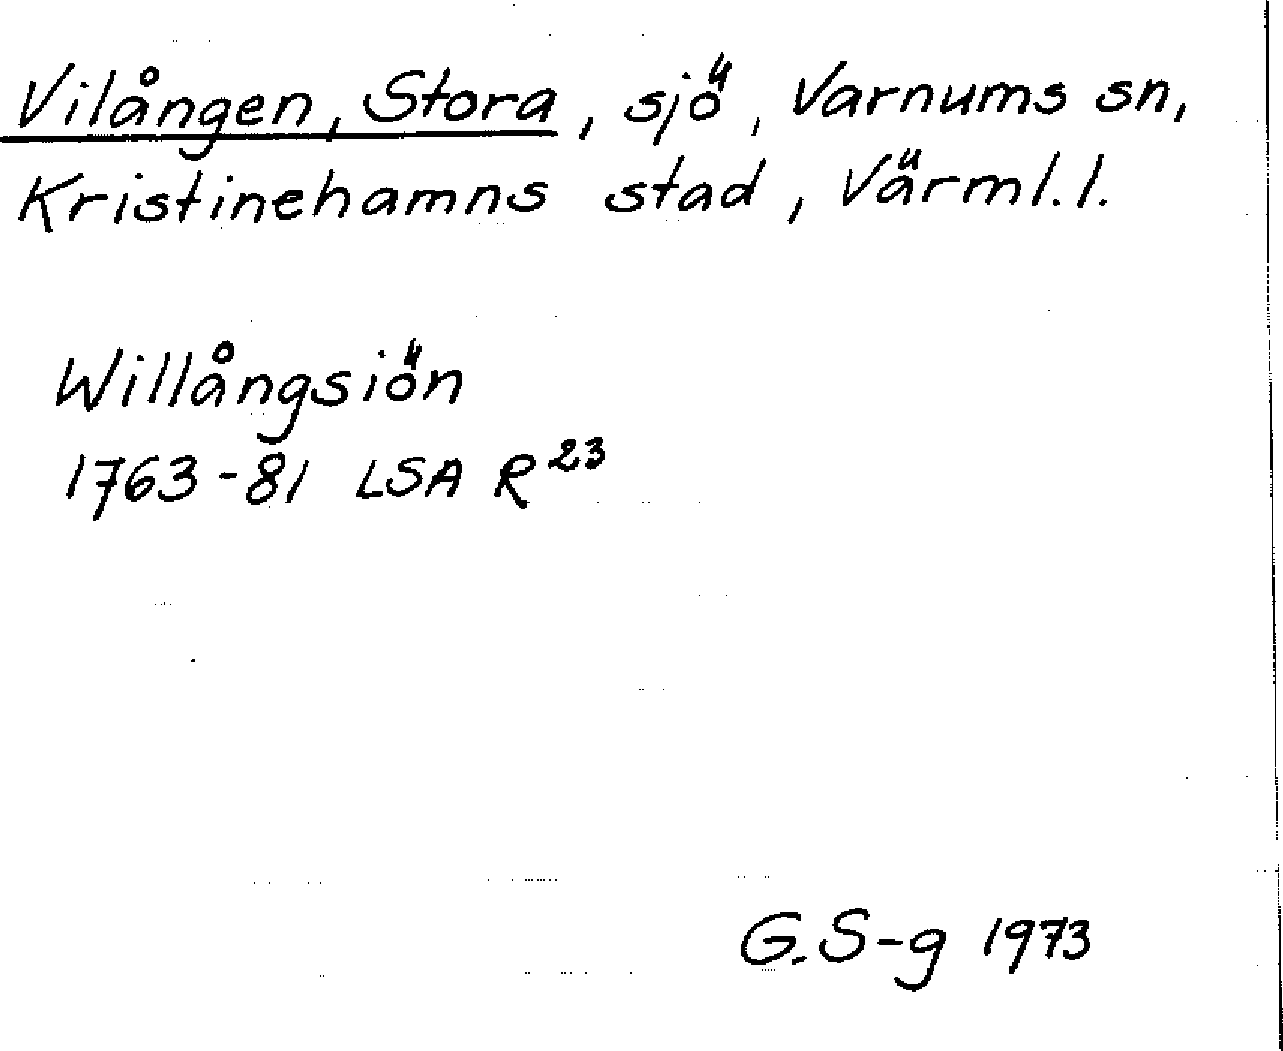 Vilången, Stora, sjö, Varnums sn,
Kristinehamns stad, Värml. l.
Willångsiön
1763-81 LSA R²³
G. S-g 1973